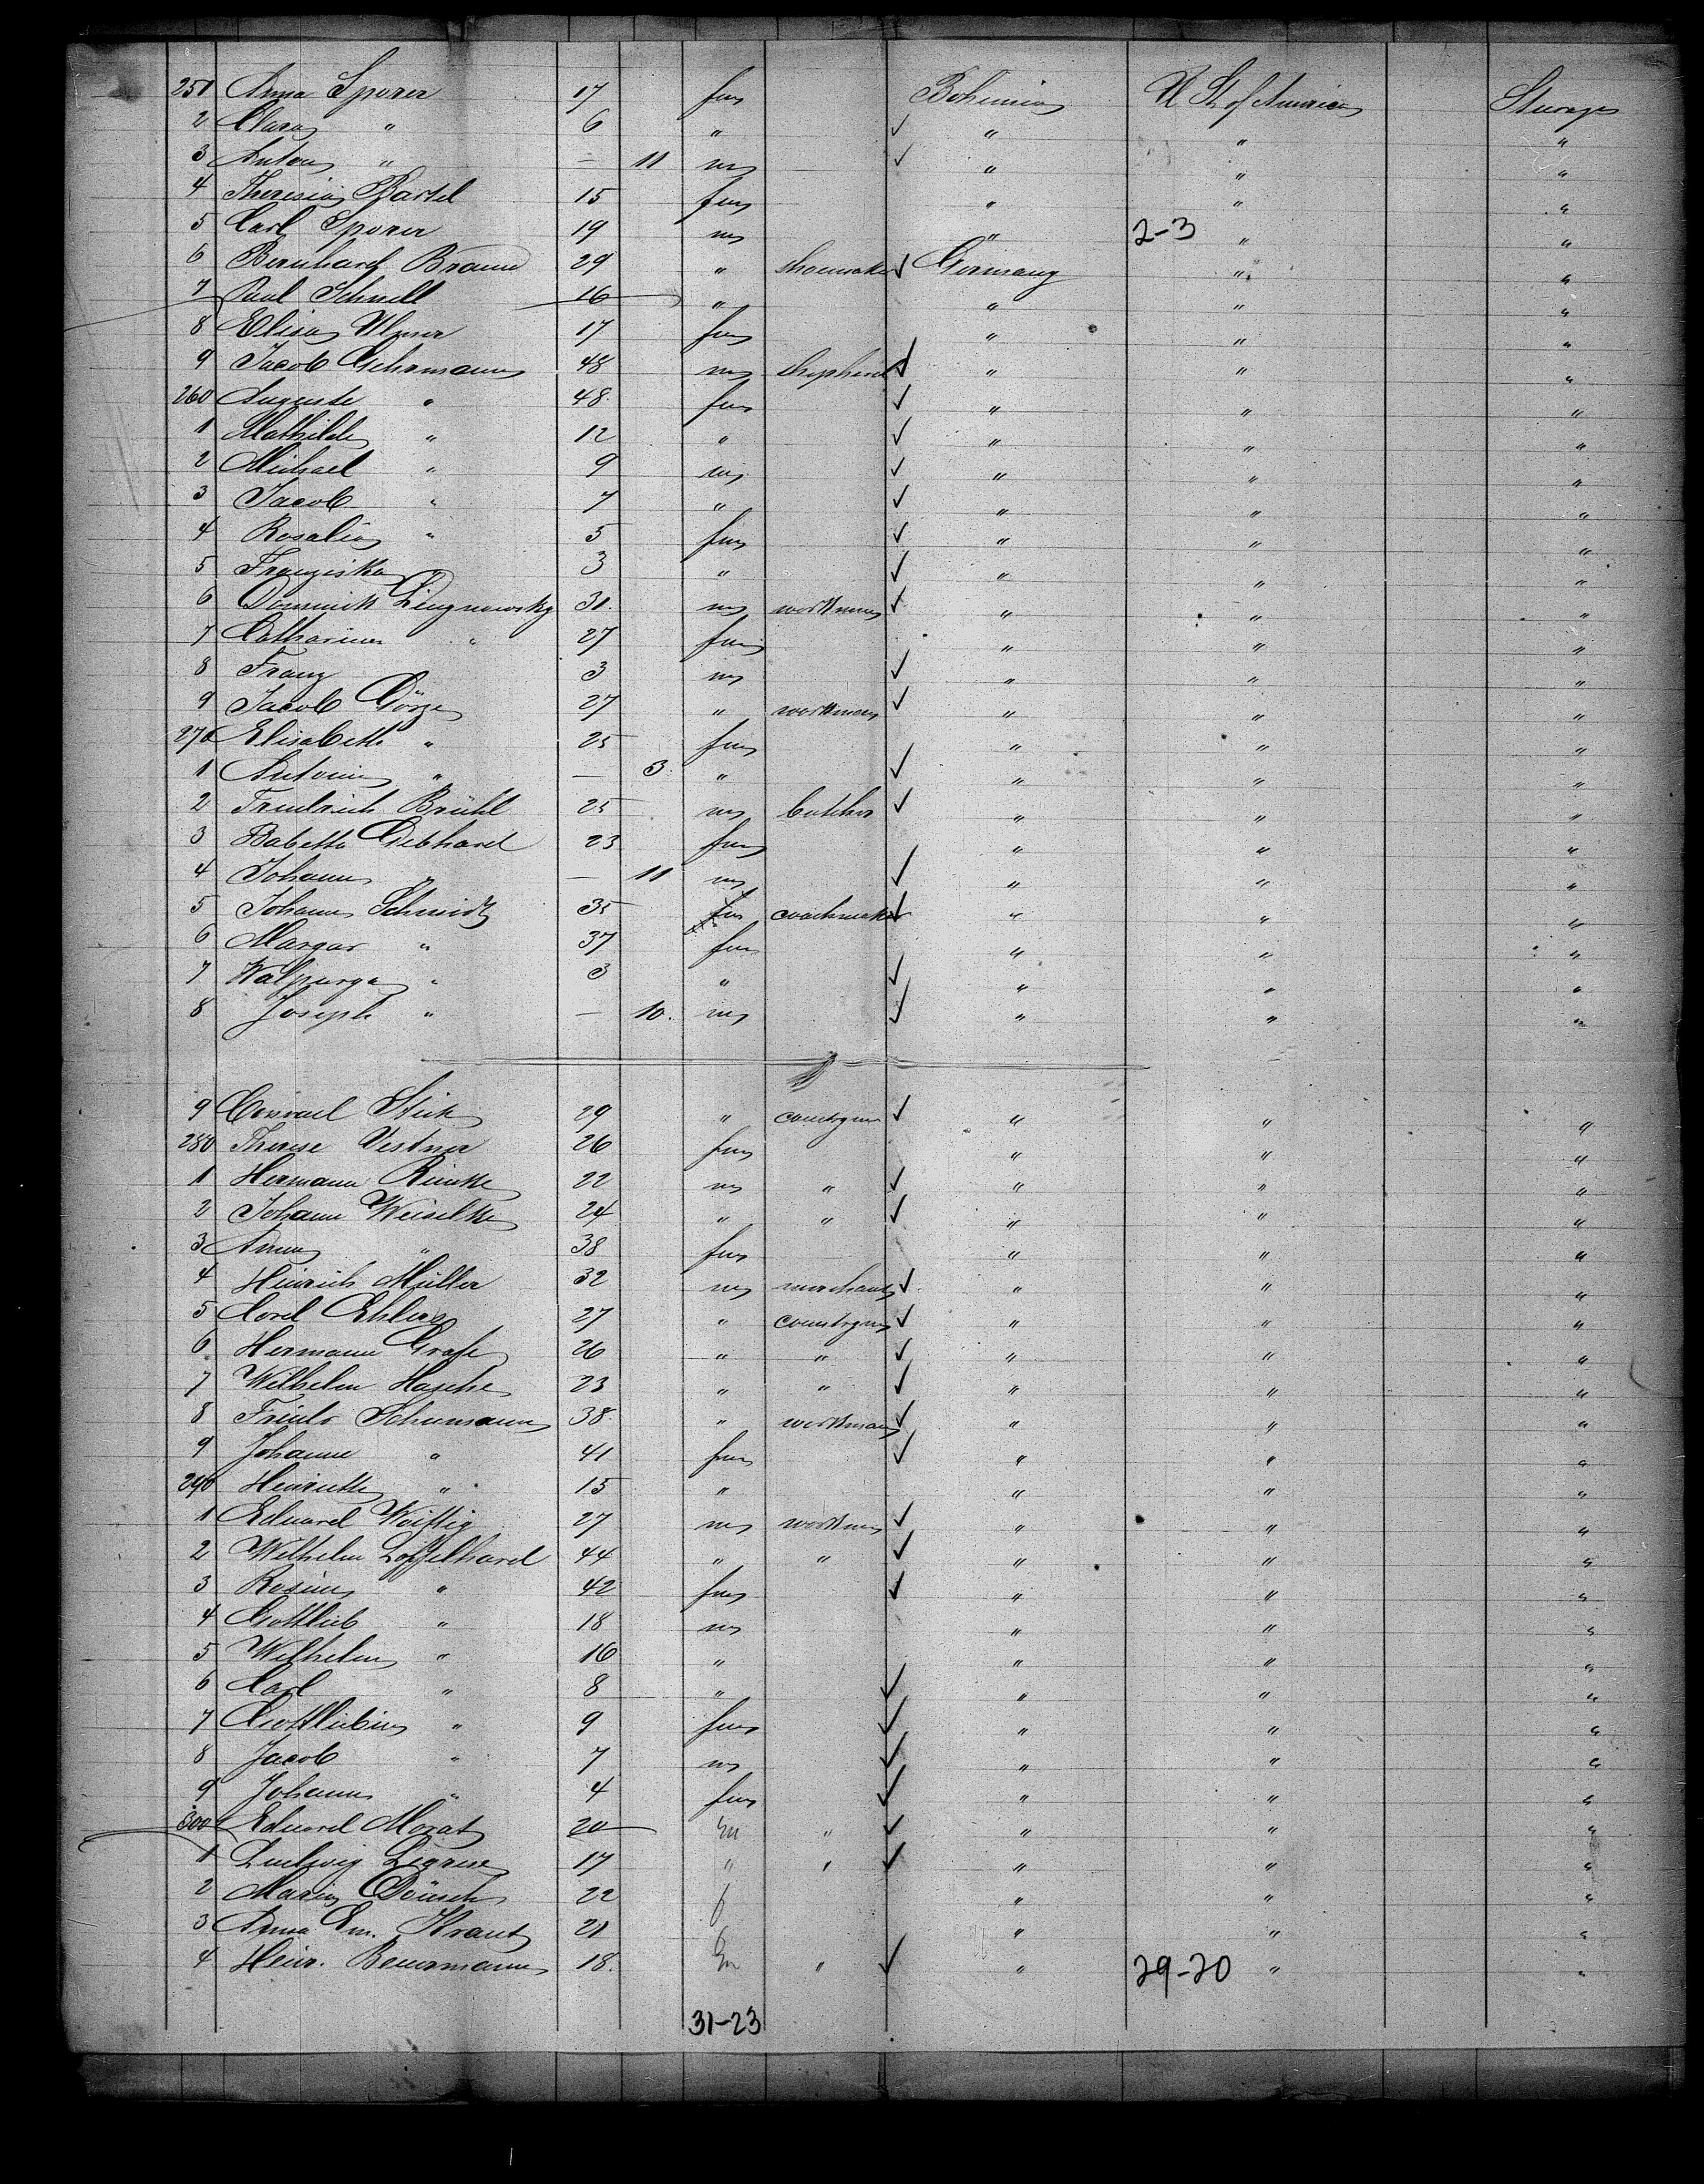 251 Anna Sporer 17 fm Bohemia U St of America Steerage
2 Clara " 6 " " " "
3 Anton " — 11 m " " "
4 Theresia Bartel 15 fm " " "
5 Carl Sporer 19 m " 2-3 " "
6 Bernhard Braun 29 " shoemaker Germany " "
7 Paul Schnell 16 " " " "
8 Elisa Ulmer 17 fm " " "
9 Jacob Gehrmann 48 m shepherd " " "
260 Auguste " 48. fm " " "
1 Mathilde " 12 " " " "
2 Michael " 9 m " " "
3 Jacob " 7 " " " "
4 Rosalia " 5 fm " " "
5 Franziska " 3 " " " "
6 Dominik 31. m workman " " "
7 Catharina " 27 fm " " "
8 Franz 3 m " " "
9 Jacob Görge 27 " workman " " "
270 Elisabeth " 25 fm " " "
1 Antonie " — 3. " " " "
2 Friedrich Brühl 25 m butcher " " "
3 Babetta Gebhard 23 fm " " "
4 Johann " — 11 m " " "
5 Johann Schmidt 35 coachmaker " " "
6 Margar " 37 fm " " "
7 Walpurga " 3 " " " "
8 Joseph " — 10. m " " "
9 Conrad Stich 29 " countrym " " "
280 Therese Vestner 26 fm " " "
1 Hermann Reincke 22 m " " " "
2 Johann Weiselke 24 " " " " "
3 Anna " 38 fm " " "
4 Heinrich Müller 32 m merchant " " "
5 Cord Ehlers 27 " countrym " " "
6 Hermann Grafe 26 " " " " "
7 Wilhelm Hasche 23 " " " " "
8 Friedr Schumann 38. " workman " " "
9 Johanne " 41 fm " " "
290 Henriette " 15 " " " "
1 Eduard 27 m workman " " "
2 Wilhelm Löffelhard 44 " " " " "
3 Rosine " 42 fm " " "
4 Gottlieb " 18 m " " "
5 Wilhelm " 16 " " " "
6 Carl " 8 " " " "
7 Gottliebin " 9 fm " " "
8 Jacob " 7 m " " "
9 Johanna " 4 fm " " "
300 Eduard Morat 20 m " " " "
1 Ludwig 17 " " " " "
2 Maria 22 f " " "
3 Anna Em. Kraut 21 f " " "
4 Heinr. Beuermann 18. m " " 29-20 " "
31-23